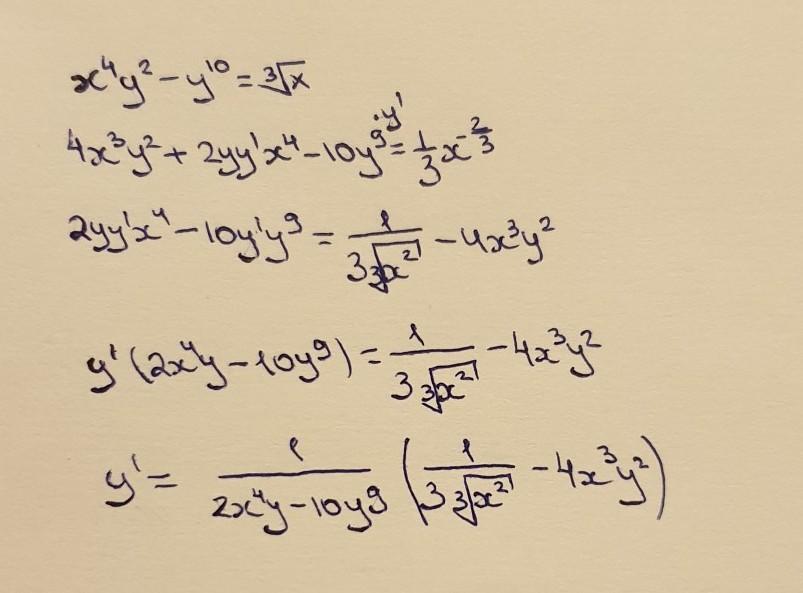 x⁴y² − y¹⁰ = ∛x
4x³y² + 2yy'x⁴ − 10y⁹·y' = 1/3 x^(−2/3)
2yy'x⁴ − 10y'y⁹ = 1/(3∛(x²)) − 4x³y²
y'(2x⁴y − 10y⁹) = 1/(3∛(x²)) − 4x³y²
y' = 1/(2x⁴y − 10y⁹) (1/(3∛(x²)) − 4x³y²)